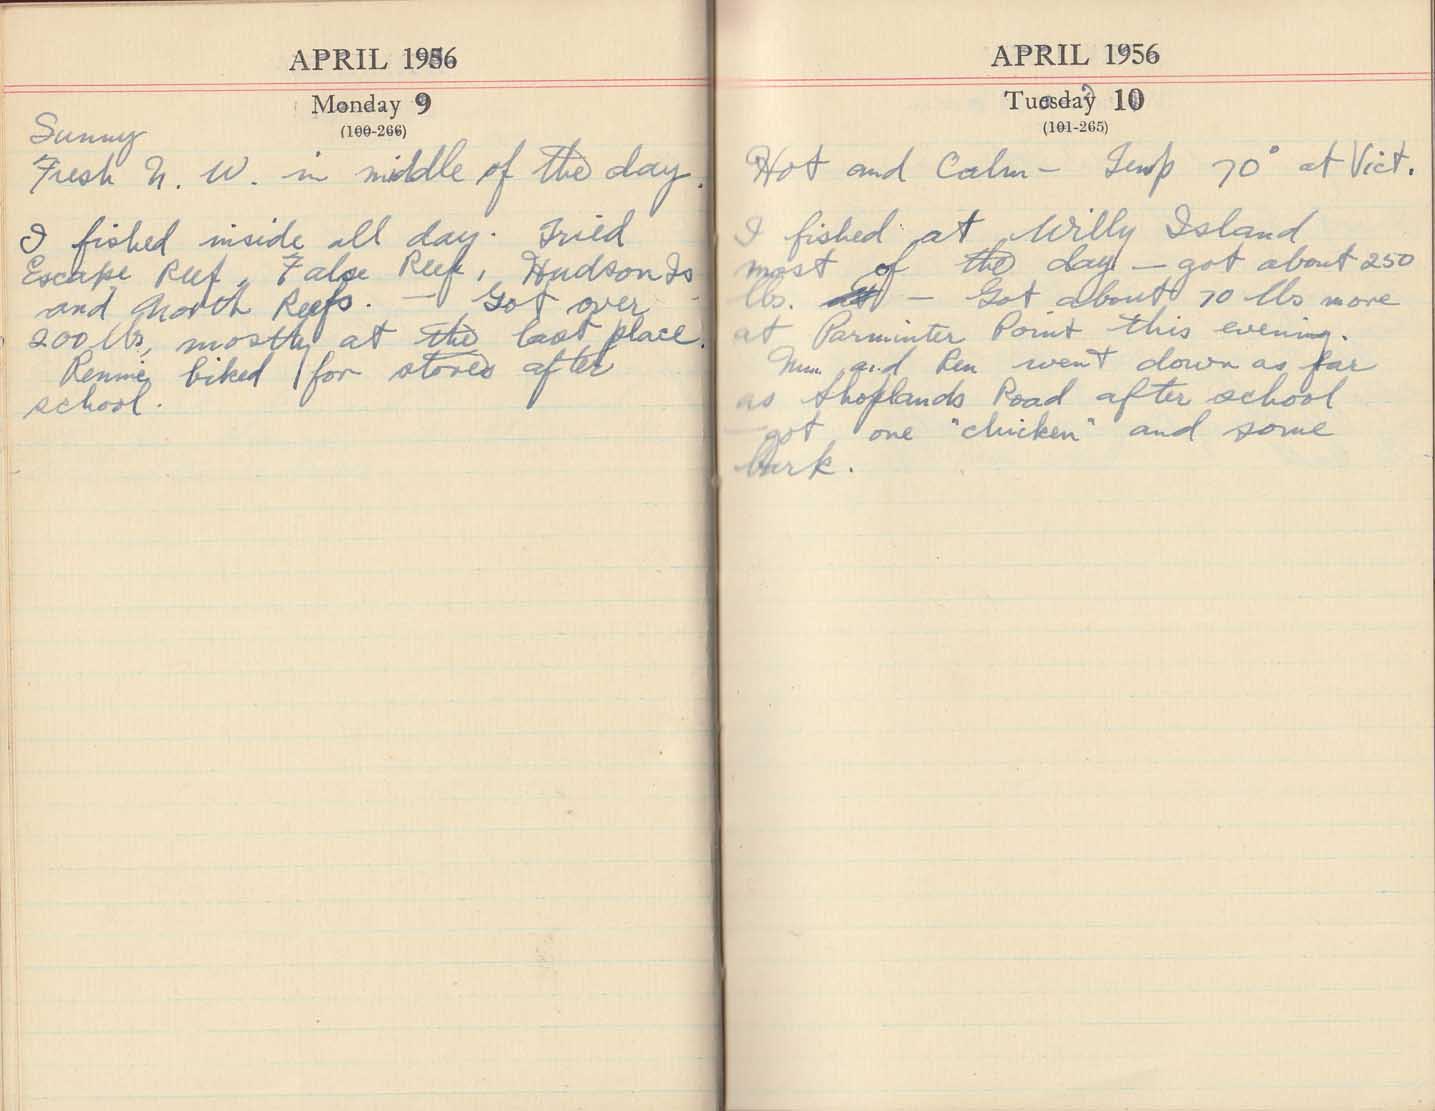 APRIL 1956
Monday 9
(100-266)
Sunny
Fresh N. W. in middle of the day.
I fished inside all day. Tried
Escape Reef, False Reef, Hudson Is
and North Reefs. — Got over
200 lbs, mostly at the last place.
Rennie biked for stores after
school.
APRIL 1956
Tuesday 10
(101-265)
Hot and Calm — Temp 70° at Vict.
I fished at Willy Island
most of the day — got about 250
lbs. — Got about 70 lbs more
at Parminter Point this evening.
Mum and Ren went down as far
as Shoplands Road after school
— got one "chicken" and some
bark.